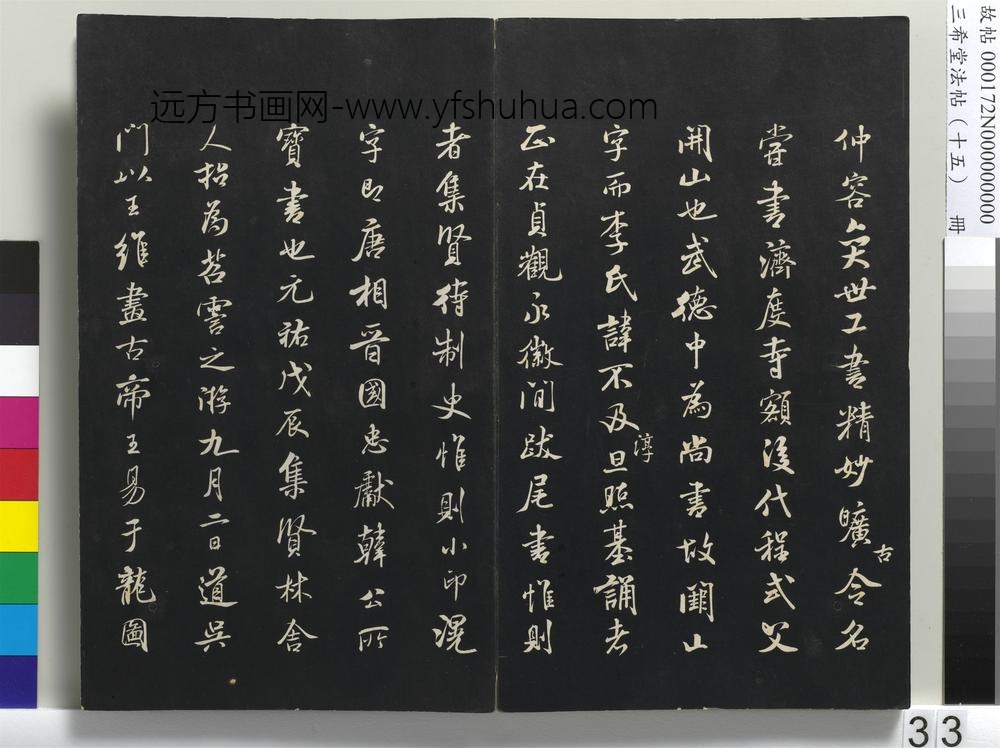 远方书画网-www.yfshuhua.com
仲容奕世工書精妙曠古令名
嘗書濟度寺額後代程式父
開山也武德中為尚書故闕山
字而李氏諱不及淳旦照基誦者
正在貞觀永徽間跋尾書惟則
者集賢待制史惟則小印滉
字即唐相晉國忠獻韓公所
寶書也元祐戊辰集賢林舍
人招為苕霅之游九月二日道吳
門以王維畫古帝王易于龍圖
故帖 000172N000000000
三希堂法帖（十五） 冊
33